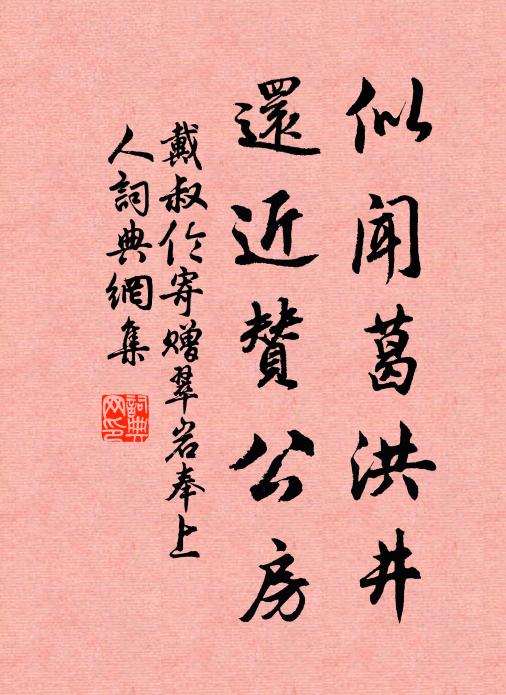 似闻葛洪井
還近贊公房
戴叔伦寄赠翠岩奉上
人詞典網集
詞典网印